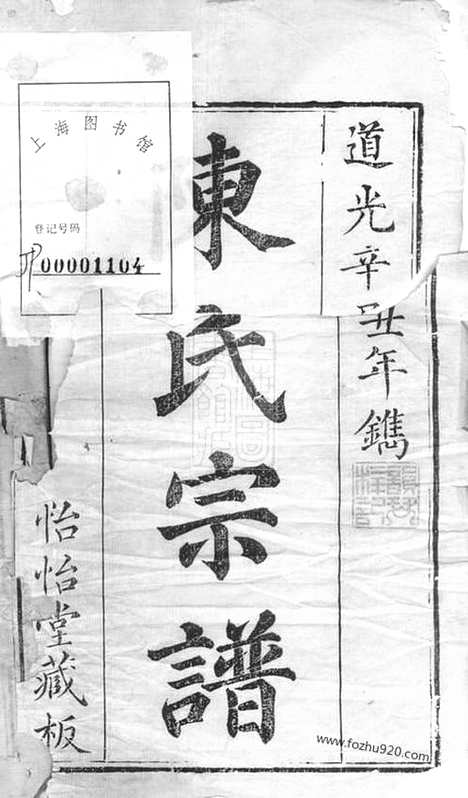 道光辛丑年鐫
東氏宗譜
怡怡堂藏板
上海图书馆
登记号码
00001104
www.fozhu920.com